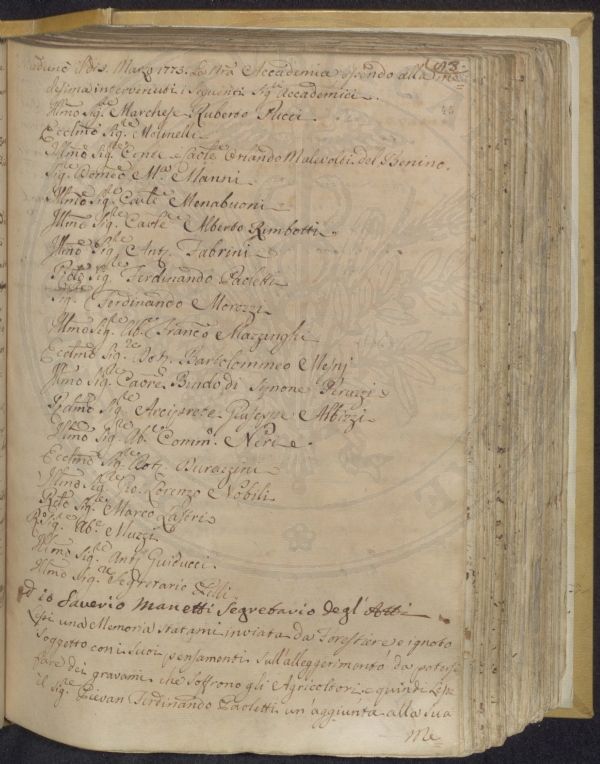 163
Adunc. P. dì 3. Marzo 1773. La Nra Accademia essendo alla
desima intervenuti i seguenti Sig.ri Accademici
45
Illmo Sig.re Marchese Ruberto Pucci
Ecclmo Sig.re Molinelli
Illmo Sig.re Cav.re Orlando Malevolti del Benino
Sig.re Domco M.a Manni
Illmo Sig.re Menabuoni
Illmo Sig.re Alberto Rimbotti
Illmo Sig.re Ant.o Fabrini
Sig.re Ferdinando Paoletti
Sig.re Ferdinando Morozzi
Illmo Sig.re Ab.e Franco Mazzinghi
Ecclmo Sig.re Dott. Bartolommeo Mesnj
Illmo Sig.re Bindo di Simone Peruzzi
Sig.re Arciprete Giuseppe Albizzi
Illmo Sig.re Ab.e Comm.e Neri
Ecclmo Sig.re Dott. Durazzini
Illmo Sig.re Gio. Lorenzo Nobili
Sig.re Marco Lastri
Sig.re Ab.e Muzzi
Illmo Sig.re Ant.o Guiducci
Illmo Sig.re Segretario Lilli
Ed io Saverio Manetti Segretario degl' Atti
Lessi una Memoria statami inviata da Forestiero e ignoto
Soggetto con i suoi pensamenti sull'alleggerimento da potersi
fare dei gravami che soffrono gli Agricoltori, e quindi Lesse
il Sig.re Pievan Ferdinando Paoletti un'aggiunta alla sua
Me